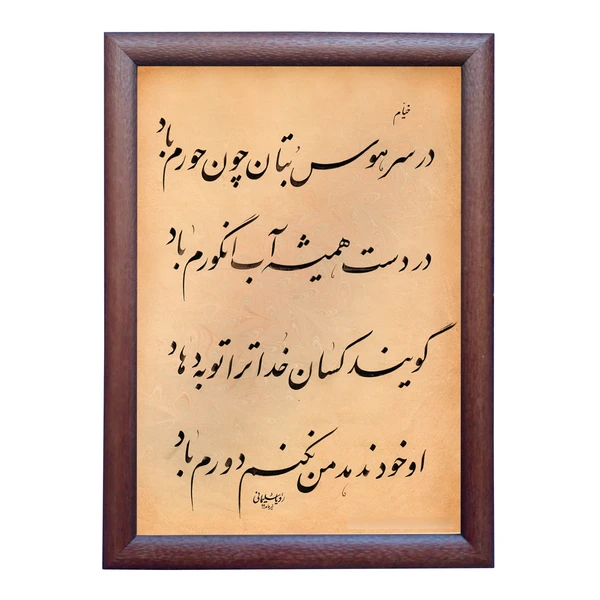 خیام
در سر هوس بتان چون حورم باد
در دست همیشه آب انگورم باد
گویند کسان خدا ترا توبه دهاد
او خود ندهد من نکنم دورم باد
رویا سلیمانی